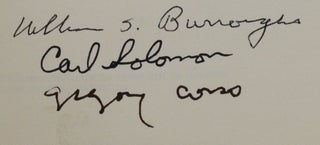 William S. Burroughs
Carl Solomon
Gregory Corso